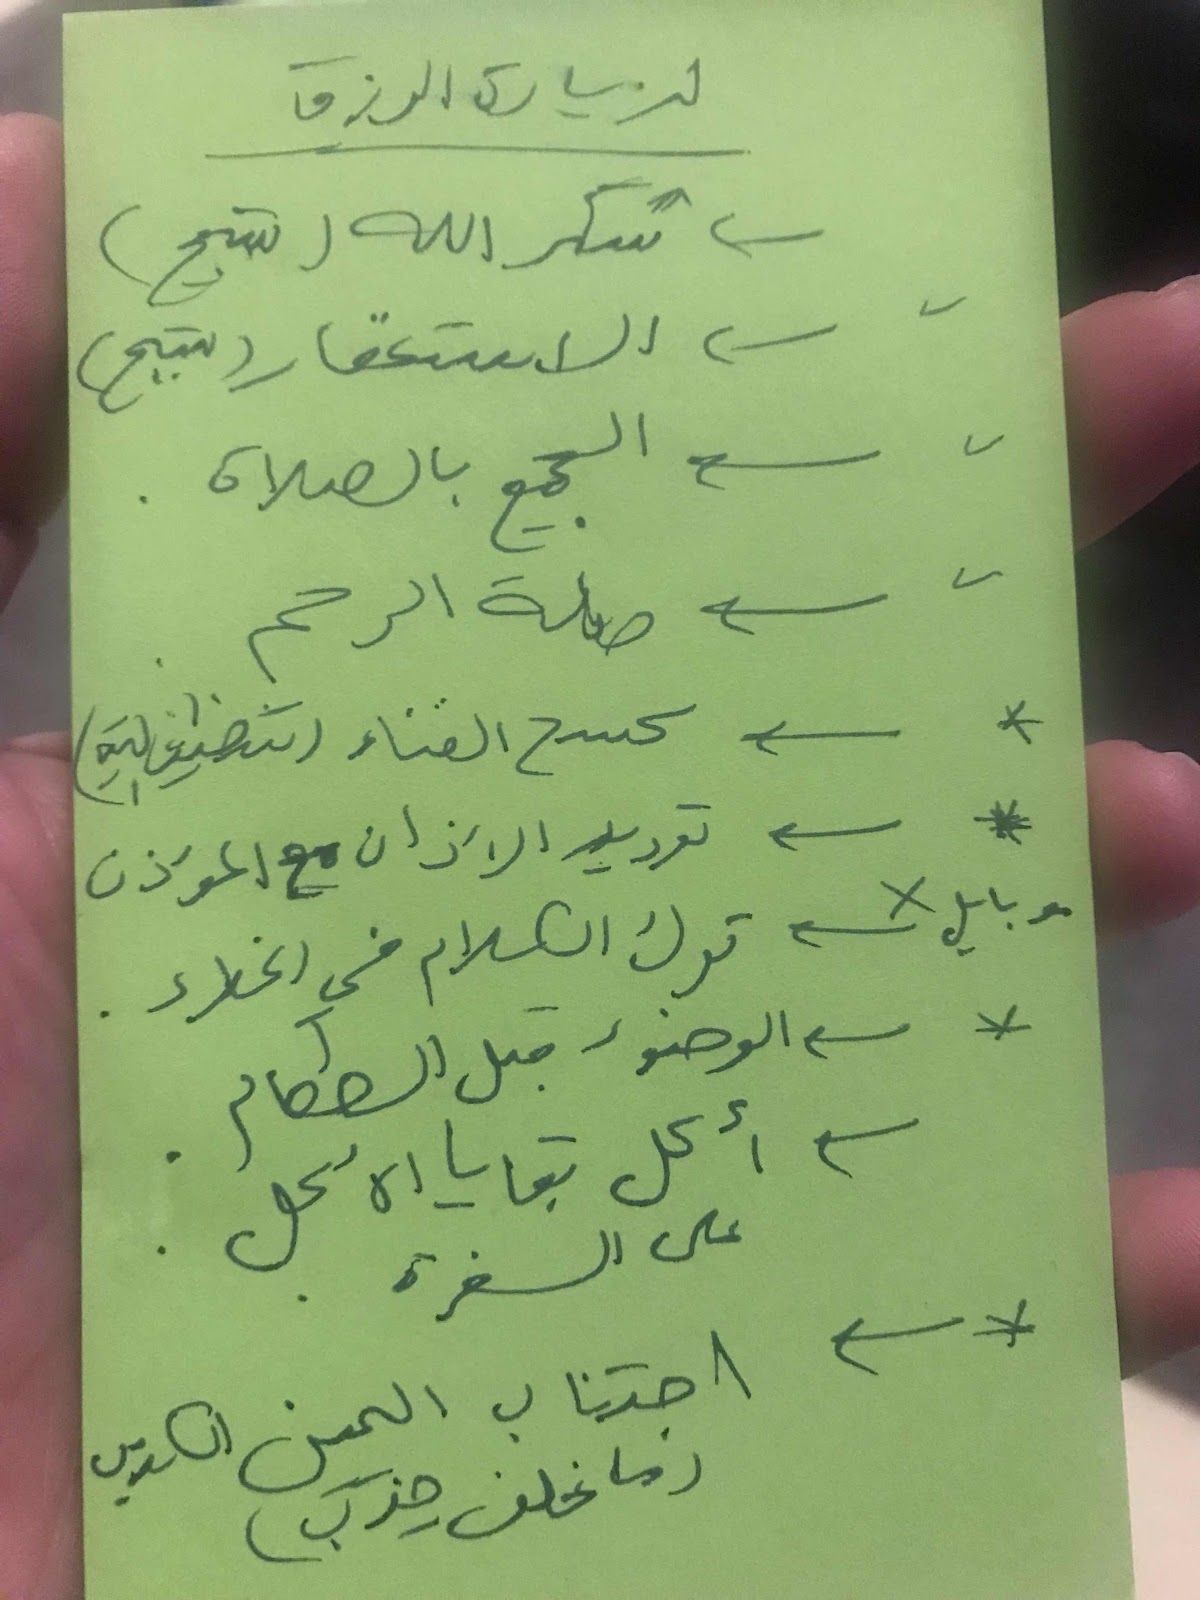 لزيادة الرزق
← شكر الله (تسبيح)
← الاستغفار (تسبيح)
← الجمع بالصلاة .
← صلة الرحم .
* ← كسح الفناء (تنظيف
* ← ترديد الاذان مع المؤذن
موبايل × ← ترك الكلام في الخلاء .
* ← الوضوء قبل الطعام .
← أكل بقايا الأكل .
على السفرة .
* ← اجتناب اليمين الكاذب
(ما نحلف چذب)